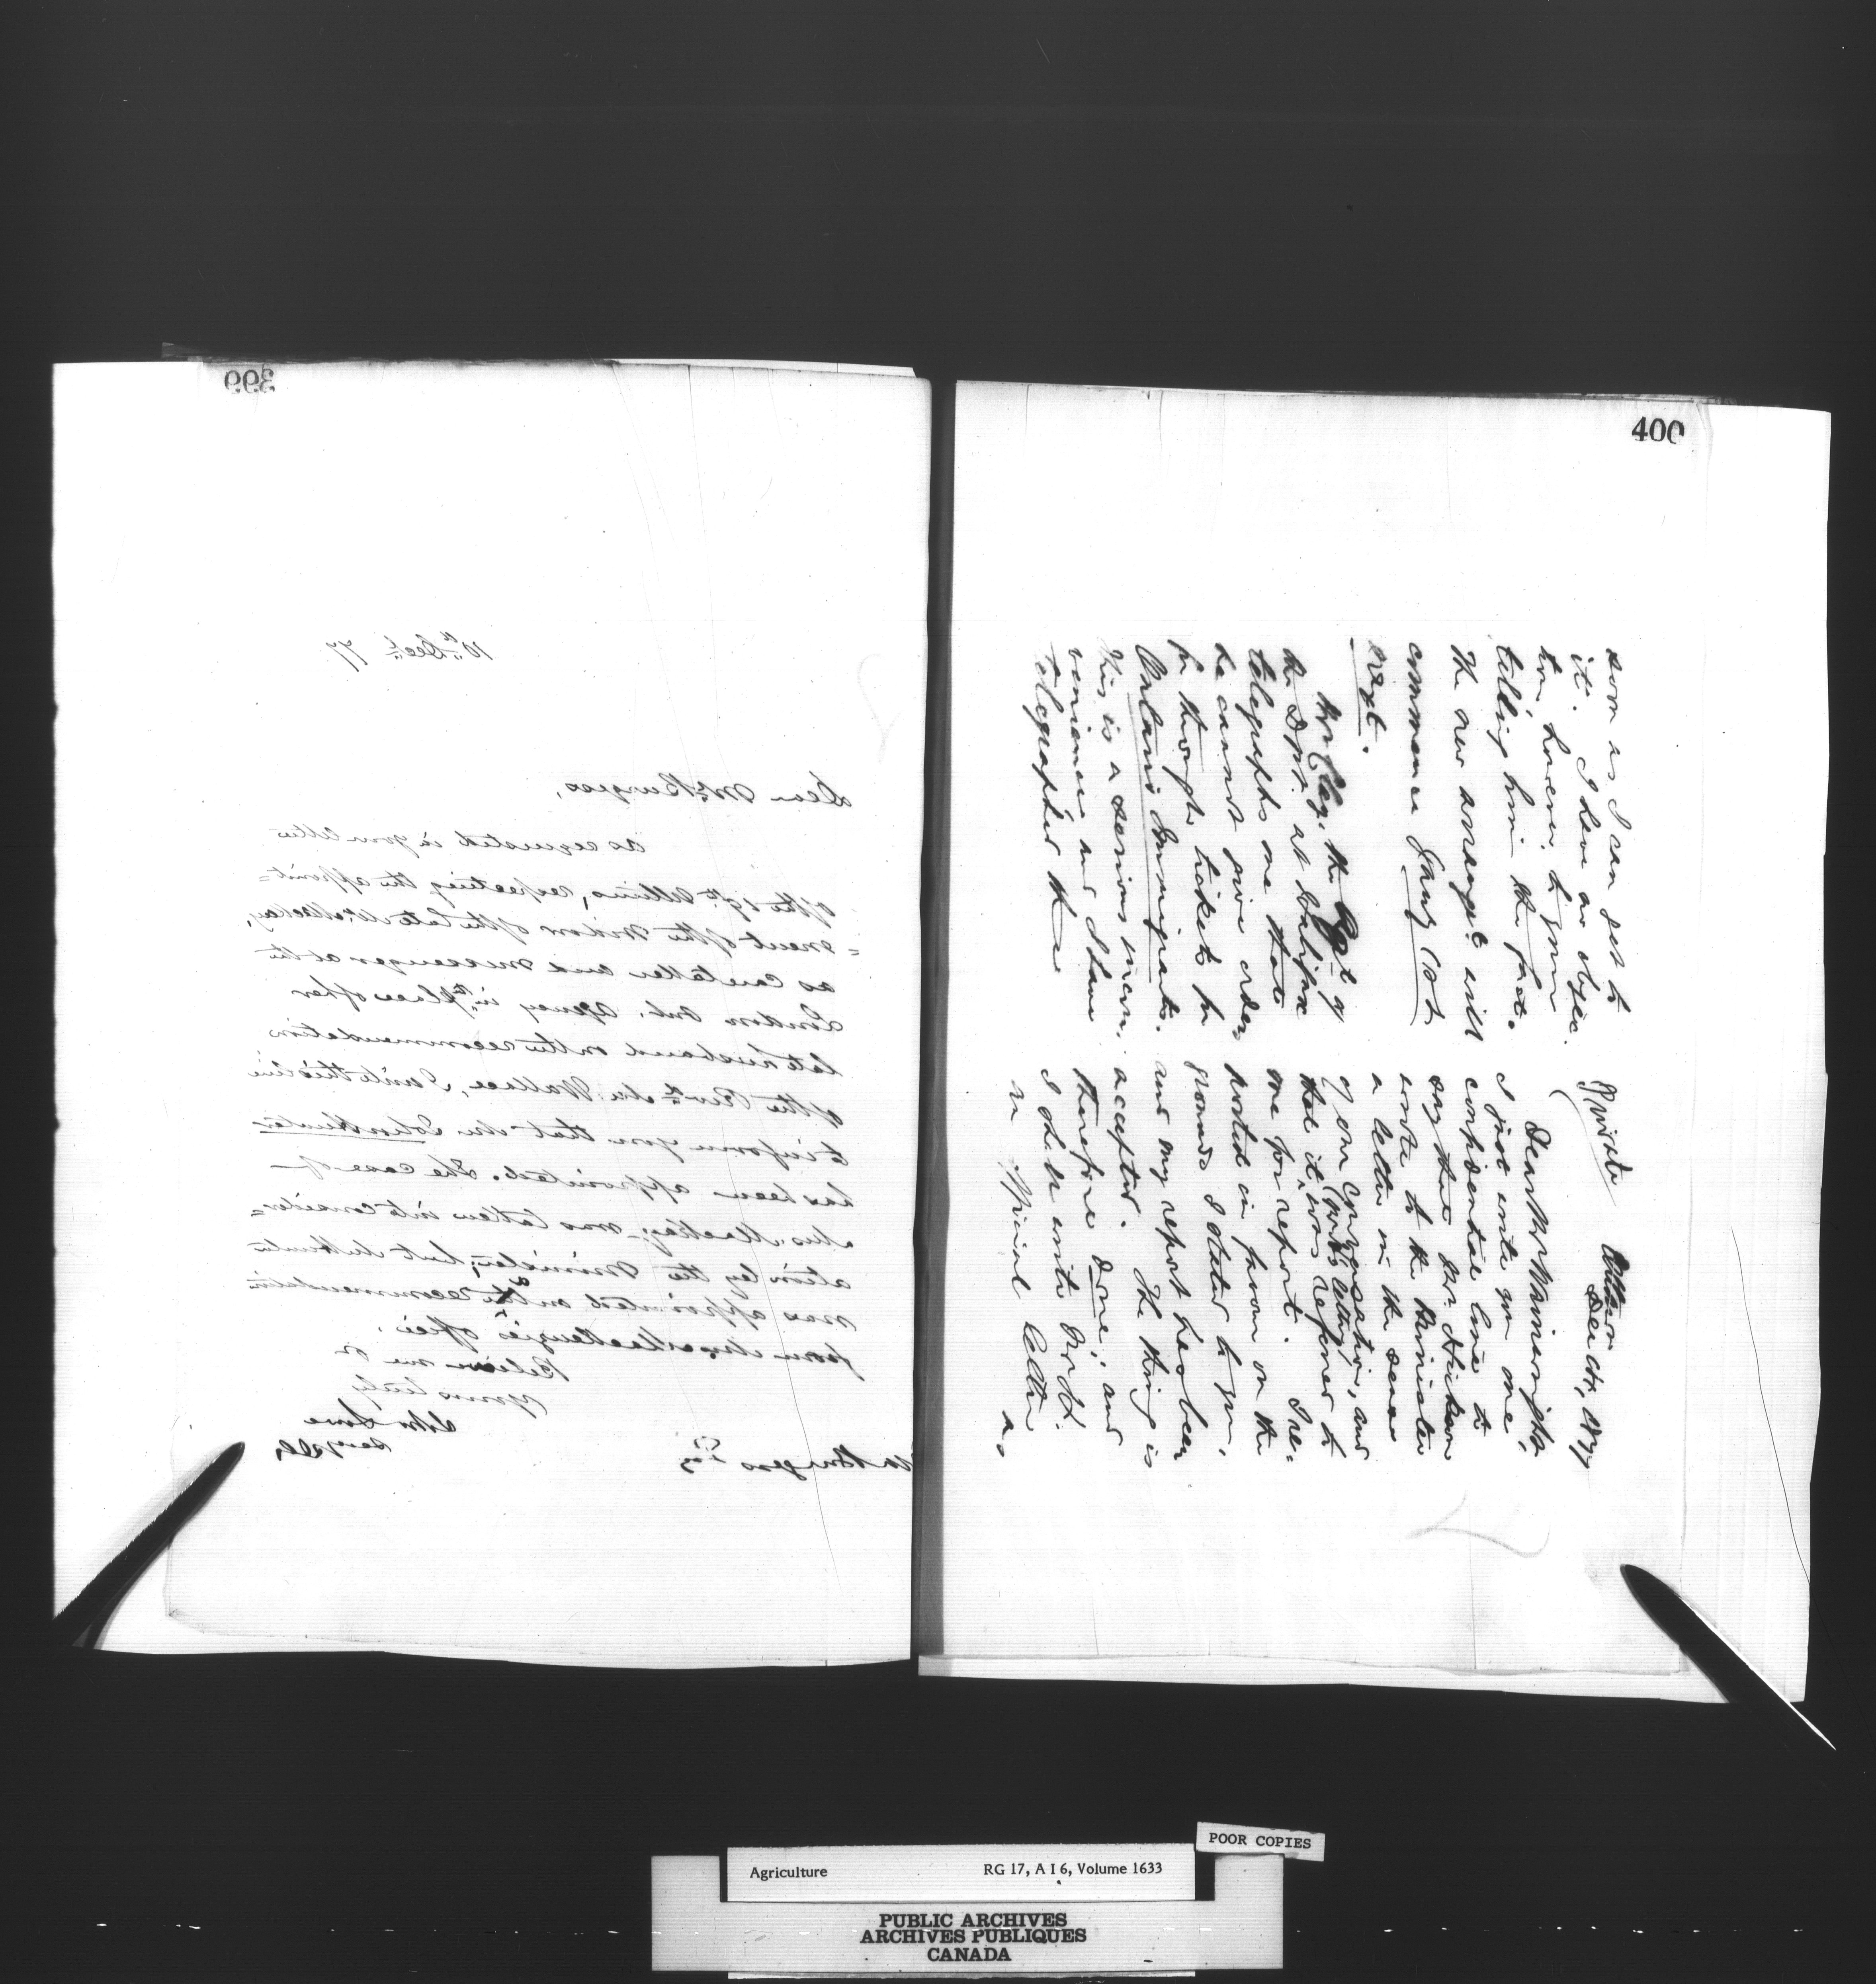 399
10th Decr. 77
Dear Mr. Burgess,
As requested in your letter
of the 19th Ultimo, respecting the appoint=
=ment of the Widow of the late Mr Mackay,
as caretaker and messenger at the
London Ont. Agency in the place of her
late husband on the recommendation
of the Revd. Mr. Wallace, I write this line
to inform you that Mr John Hunter
has been appointed. The case of
Mrs. Mackay was taken into consider=
ation by the Minister, but Mr Hunter
was appointed on the recommendation
from Mr. Mackenzie's office.
Believe me
yours truly
John Lowe
Secy DA
Burgess Esq
400
Private
Ottawa
Dear Mr Wainwright,
I just write you one
confidential line to
say that Mr. Dickson
wrote to the Minister
a letter in the sense
of our conversation, and
that it was referred to
me for report. I re-
ported in favour on the
grounds I stated to you,
and my report has been
accepted. The thing is
therefore done; and
I shall write
an official letter
as
soon as I can get to
it. I have no objec.
tion, however, to your
telling him the fact.
The new arrangt. will
commence Jany 1st
next.
Mr Clay, the Agt. of
the Dpt. at Halifax
telegraphs me that
he cannot give orders
for through tickets for
Ontario Immigrants.
This is a serious incon.
venience and I have
telegraphed
POOR COPIES
Agriculture RG 17, A I 6, Volume 1633
PUBLIC ARCHIVES
ARCHIVES PUBLIQUES
CANADA